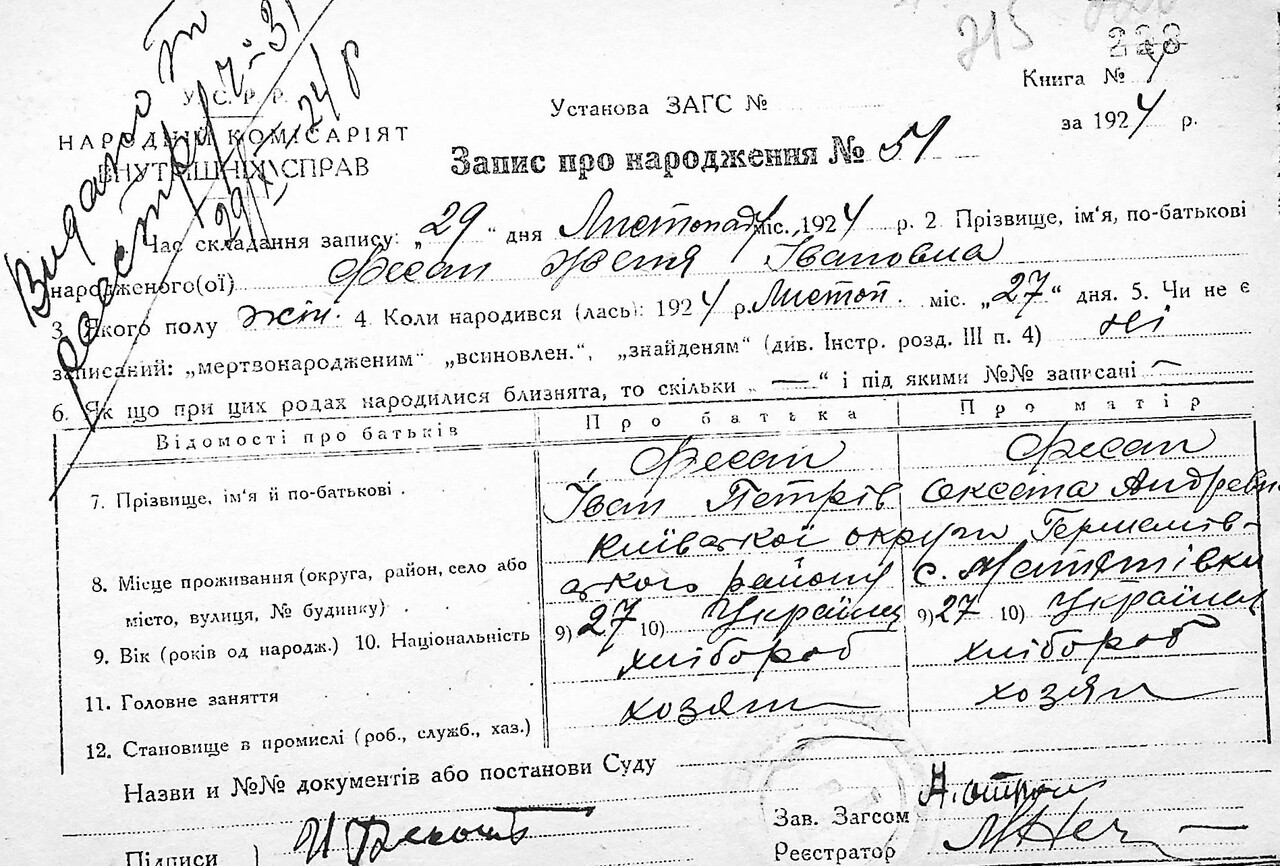 215
228
Книга № 4
У. С. Р. Р.
НАРОДНИЙ КОМІСАРІЯТ
ВНУТРІШНІХ СПРАВ
Установа ЗАГС №
за 1924 р.
Видано
Запис про народження № 51
Час складання запису: „29“ дня Листопад міс. 1924 р. 2. Прізвище, ім'я, по-батькові
народженого(ої) Фесан Івановна
3. Якого полу жін. 4. Коли народився (лась): 1924 р. Листоп. міс. „27“ дня. 5. Чи не є
записаний: „мертвонародженим“ „всиновлен.“, „знайденям“ (див. Інстр. розд. III п. 4) ні
6. Як що при цих родах народилися близнята, то скільки „—“ і під якими №№ записані —
Відомості про батьків Про батька Про матір
Фесан Фесан
7. Прізвище, ім'я й по-батькові . Іван Петрів Оксана Андревн
Київської округи Германів-
8. Місце проживання (округа, район, село або ського району с.
місто, вулиця, № будинку) .
9. Вік (років од народж.) 10. Національність 9) 27 10) Українец 9) 27 10) Українец
11. Головне заняття хлібороб хлібороб
12. Становище в промислі (роб., служб., хаз.) хозяин хозяин
Назви и №№ документів або постанови Суду
Зав. Загсом
Підписи
Реєстратор